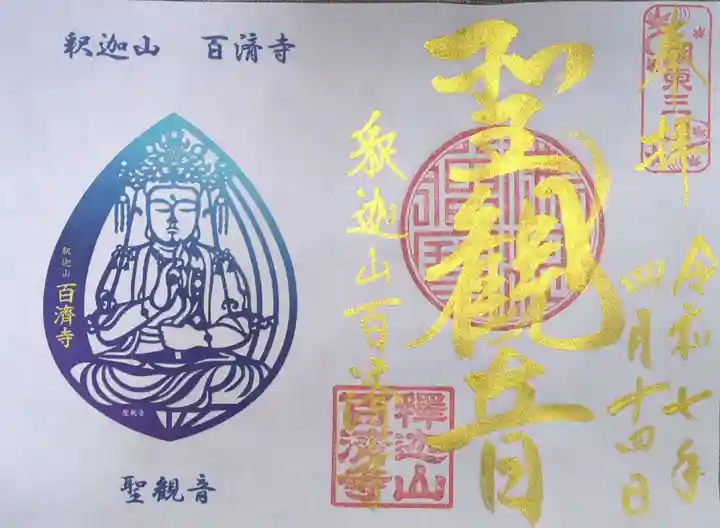 釈迦山　百済寺
釈迦山
百濟寺
聖観音
聖観音
奉拝
湖東三
聖観音
釈迦山百済寺
釋迦山
百濟寺
令和七年
四月十四日